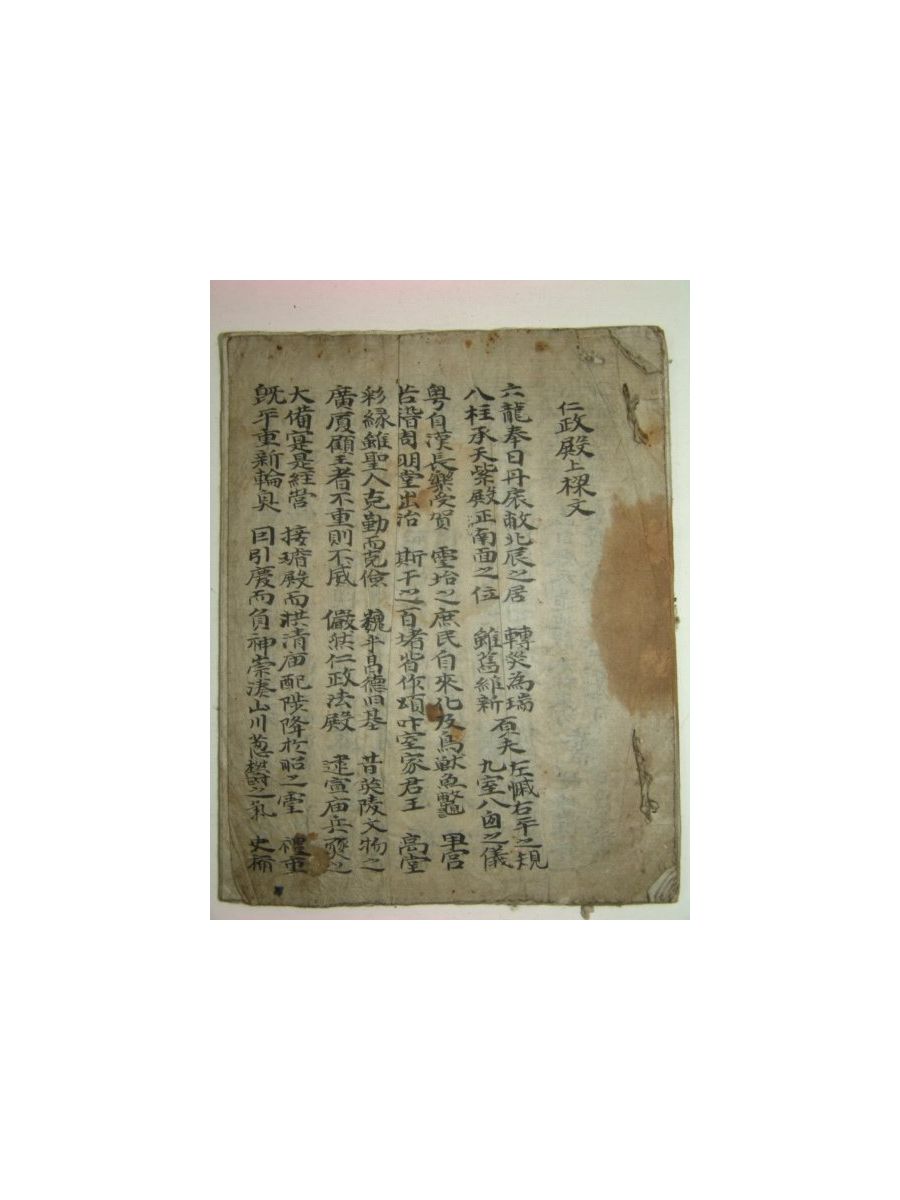 仁政殿上樑文
六龍奉日丹扆敝北辰之居 轉災為瑞 左墄右平之規
八柱承天紫殿正南面之位 雖舊維新 頁夫 九室八囱之儀
粤自漢長樂受賀 靈坮之庶民自來化及鳥獸魚鼈 卑宮
若周明堂出治 斯干之百堵皆作頌叶室家君王 高堂
彩緣雖聖人克勤而克儉 巍乎高德旧基 昔英陵文物之
廣厦顧王者不重則不威 儼然仁政法殿 逮宣庙兵燹之
大備寔是經營 接璿殿而洪清庙配陟降於昭之靈 禮重
旣平重新輪奐 回引慶而負神崇湊山川葱欝之氣 史稱